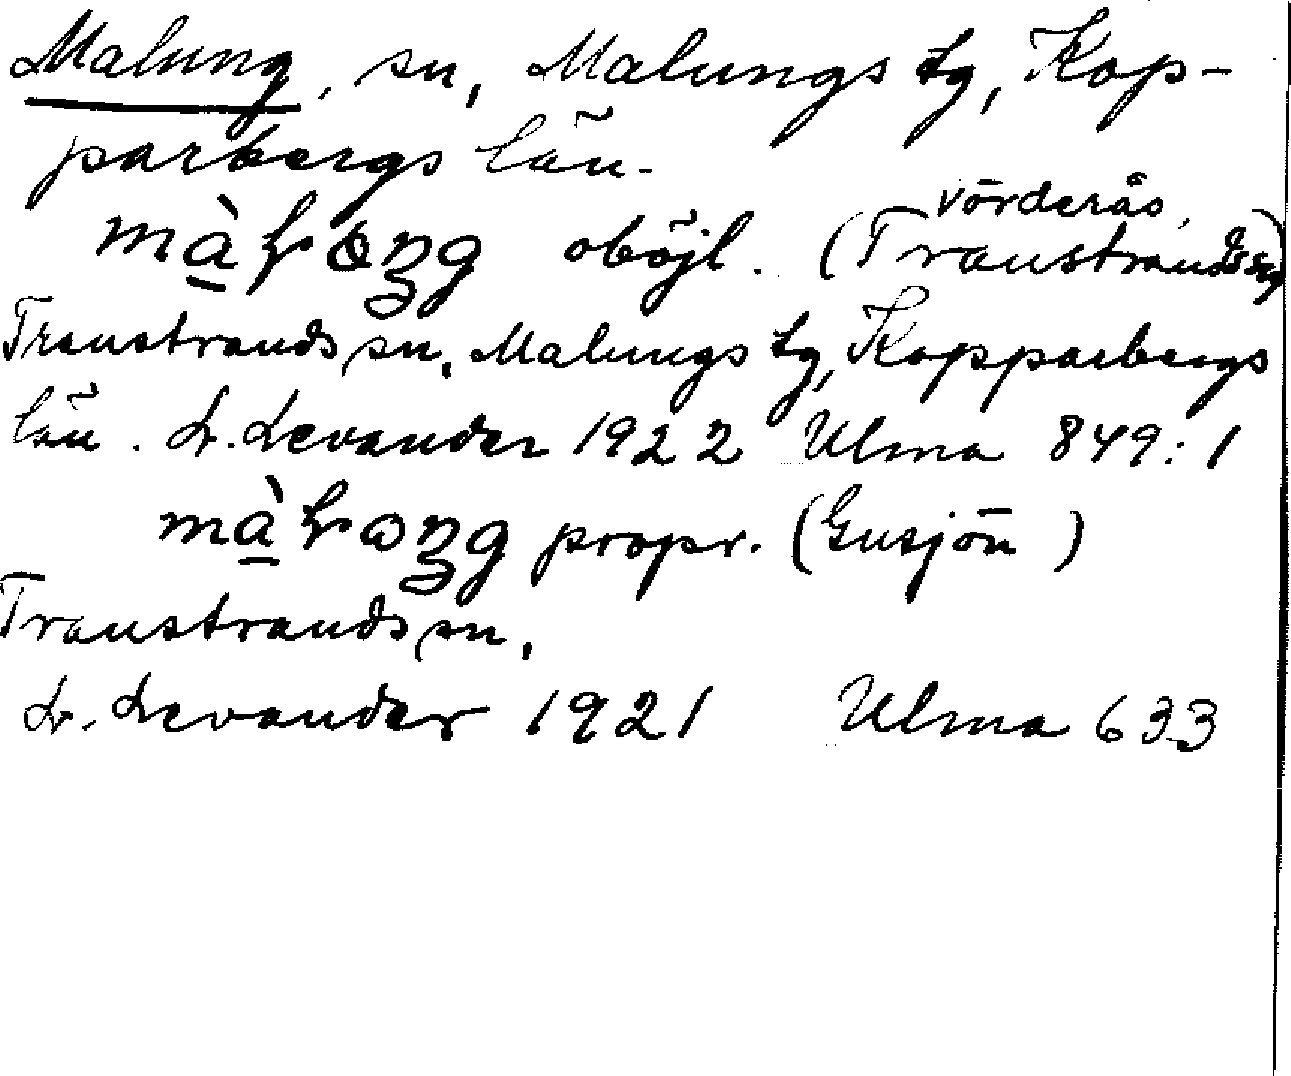 Malung, sn, Malungs tg, Kop-
parbergs län.
vörderås,
oböjl. (Transtrands sn)
Transtrands sn, Malungs tg, Kopparbergs
län. L. Levander 1922 Ulma 849:1
propr. (Gusjön)
Transtrands sn,
L. Levander 1921 Ulma 633